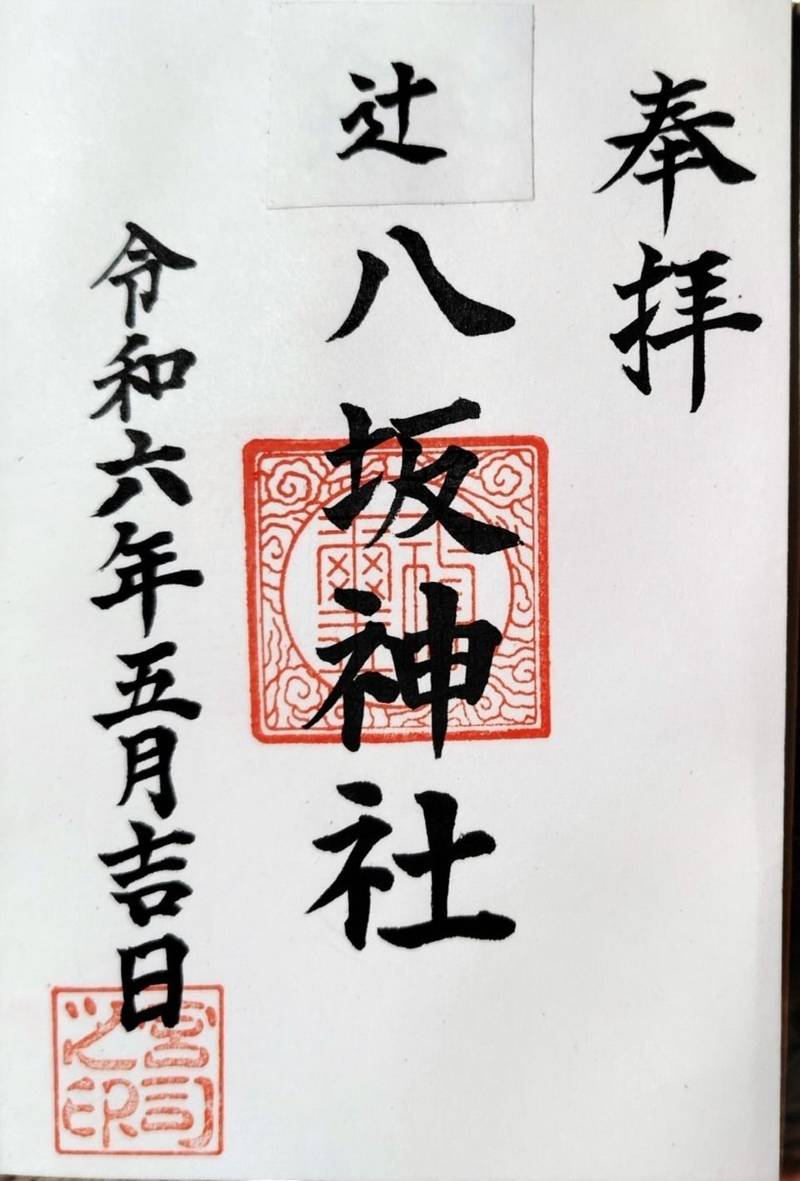 奉拝
辻
八坂神社
令和六年五月吉日
宮司之印